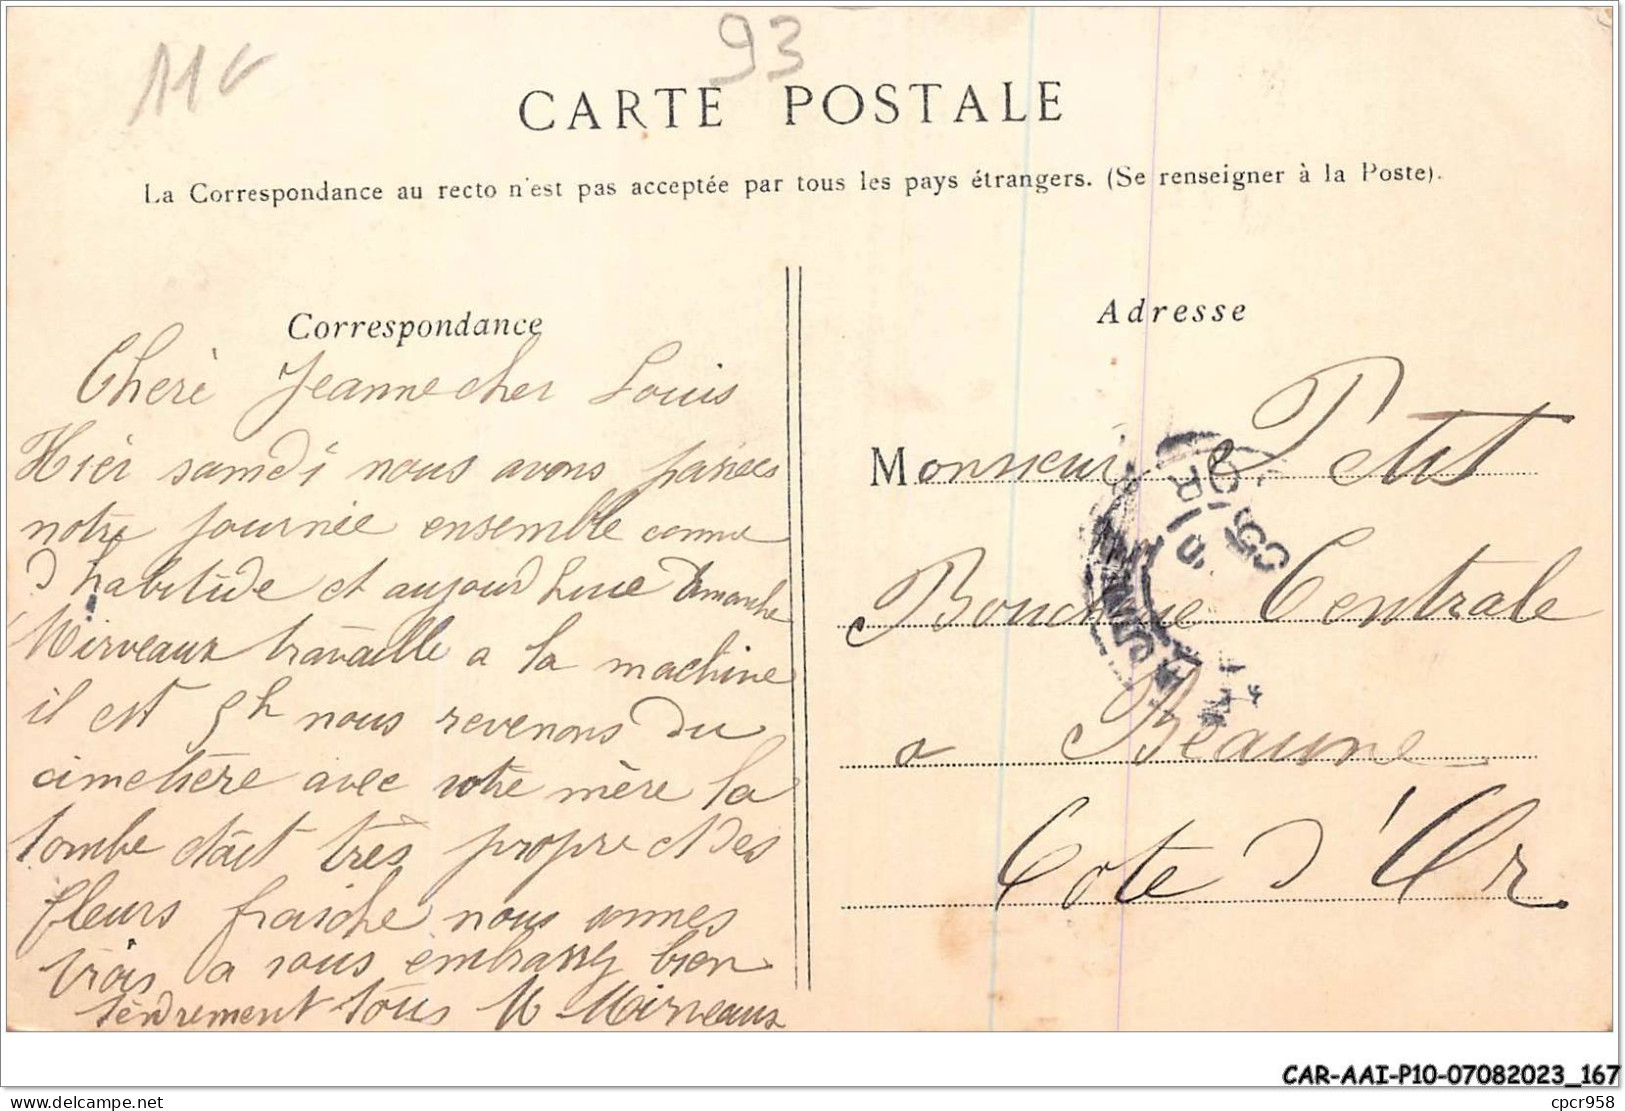 11G
93
CARTE POSTALE
La Correspondance au recto n'est pas acceptée par tous les pays étrangers. (Se renseigner à la Poste).
Correspondance
Cherè Jeanne cher Louis
Hièr samdi nous avons passees
notre journée ensemble comme
d habitude et aujourd huie dimanche
Mirveaux travaille a la machine
il est 5h nous revenons du
cimetière avec votre mère la
tombe était très propre et des
fleurs fraiche nous sommes
trois a vous embrassez bien
tendrement tous M Mirveaux
Adresse
Monsieur Petit
Boucherie Centrale
a Beaune
Cote d'Or
CAR-AAI-P10-07082023_167
delcampe.net
cpcr958